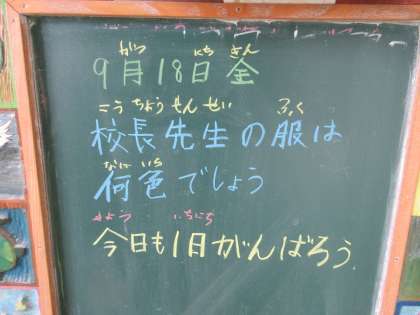 がつ にち きん
9月18日金
こうちょうせんせい ふく
校長先生の服は
なに いろ
何色でしょう
きょう いちにち
今日も1日がんばろう